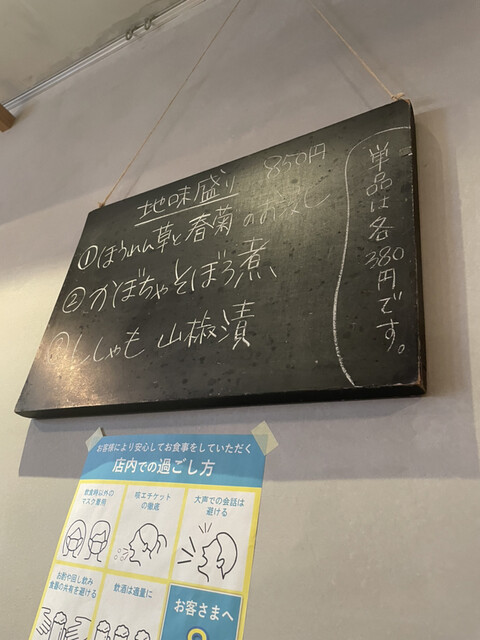 地味盛り 850円
①ほうれん草と春菊のおひたし
②かぼちゃそぼろ煮
③ししゃも 山椒漬
単品は各380円です。
お客様により安心してお食事をしていただく
店内での過ごし方
飲食時以外の
マスク着用
咳エチケット
の徹底
大声での会話は
避ける
お酌や回し飲み
食器の共有を避ける
飲酒は適量に
お客さまへ